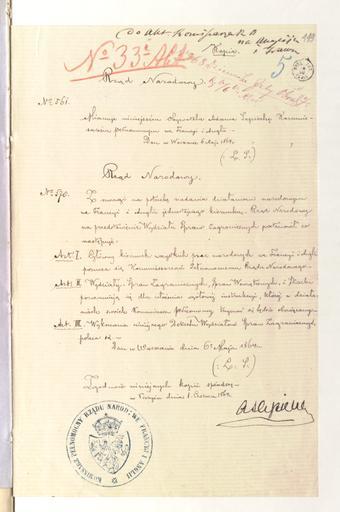 Do Akt Komisarza
na Anglię
i Francję
Kopia
119
5
No 33. Akt
Rząd Narodowy.
No 561.
Mianuje niniejszem Obywatela Adama Sapiehę Komis-
sarzem pełnomocnym na Francję i Anglię
Dan w Warszawie 6 Maja 1864.
(: L. S. :)
Rząd Narodowy.
No 570.
Z uwagi na potrzebę nadania działaniom narodowym
we Francji i Anglii jednolitego kierunku, Rząd Narodowy
na przedstawienie Wydziału Spraw Zagranicznych postanowił co
następuje:
Art. I. Główny kierunek wszystkich prac narodowych we Francji i Anglii
porucza się Komissarzowi Pełnomocnemu Rządu Narodowego.
Art. II. Wydziały: Spraw Zagranicznych, Spraw Wewnętrznych, i Skarbu
porozumieją się dla ułożenia ogólnej instrukcji, której w działa-
niach swoich Komissarz Pełnomocny trzymać się będzie obowiązanym.
Art. III. Wykonanie niniejszego Dekretu Wydziałowi Spraw Zagranicznych,
poleca się.
Dan w Warszawie dnia 6 Maja 1864
(: L. S. :)
Zgodność niniejszych kopii
w Paryżu dnia 1. Czerwca 1864.
ASapieha
KOMISARZ PEŁNOMOCNY RZĄDU NAROD: WE FRANCYI I ANGLII